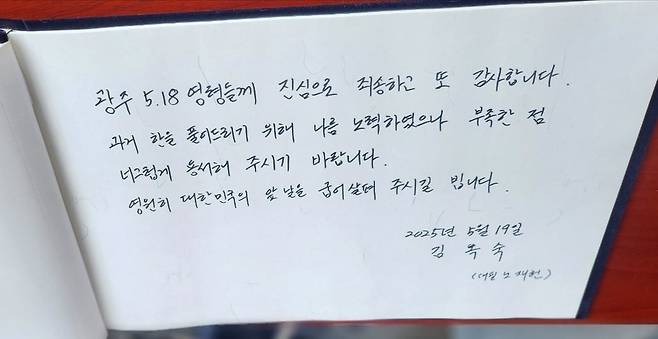 광주 5.18 영령들께 진심으로 죄송하고 또 감사합니다.
과거 한을 풀어드리기 위해 나름 노력하였으나 부족한 점
너그럽게 용서해 주시기 바랍니다.
영원히 대한민국의 앞날을 굽어살펴 주시길 빕니다.
2025년 5월 19일
김 옥 숙
(대필 노재헌)